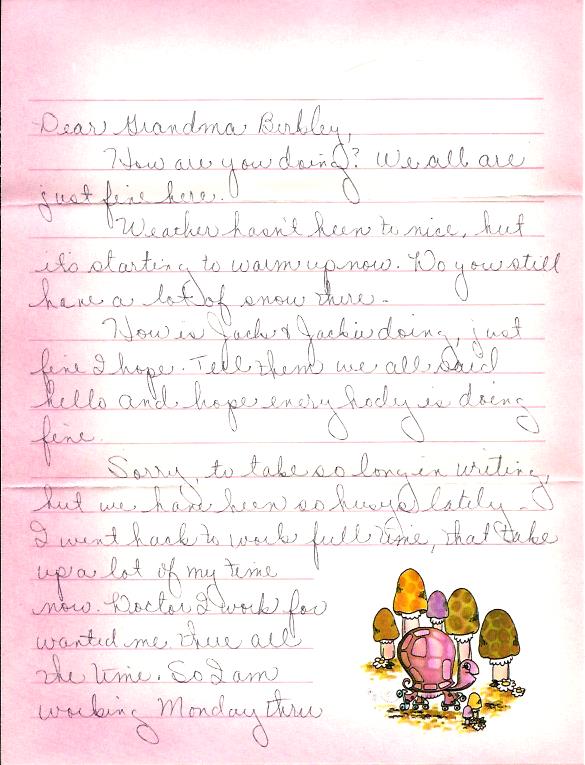 Dear Grandma Berkley,
How are you doing? We all are
just fine here.
Weather hasn't been to nice, but
it's starting to warm up now. Do you still
have a lot of snow there.
How is Jack & Jackie doing, just
fine I hope. Tell them we all said
hello and hope every body is doing
fine.
Sorry, to take so long in writing,
but we have been so busy lately.
I went back to work full time, that take
up a lot of my time
now. Doctor I work for
wanted me there all
the time. So I am
working Monday thru